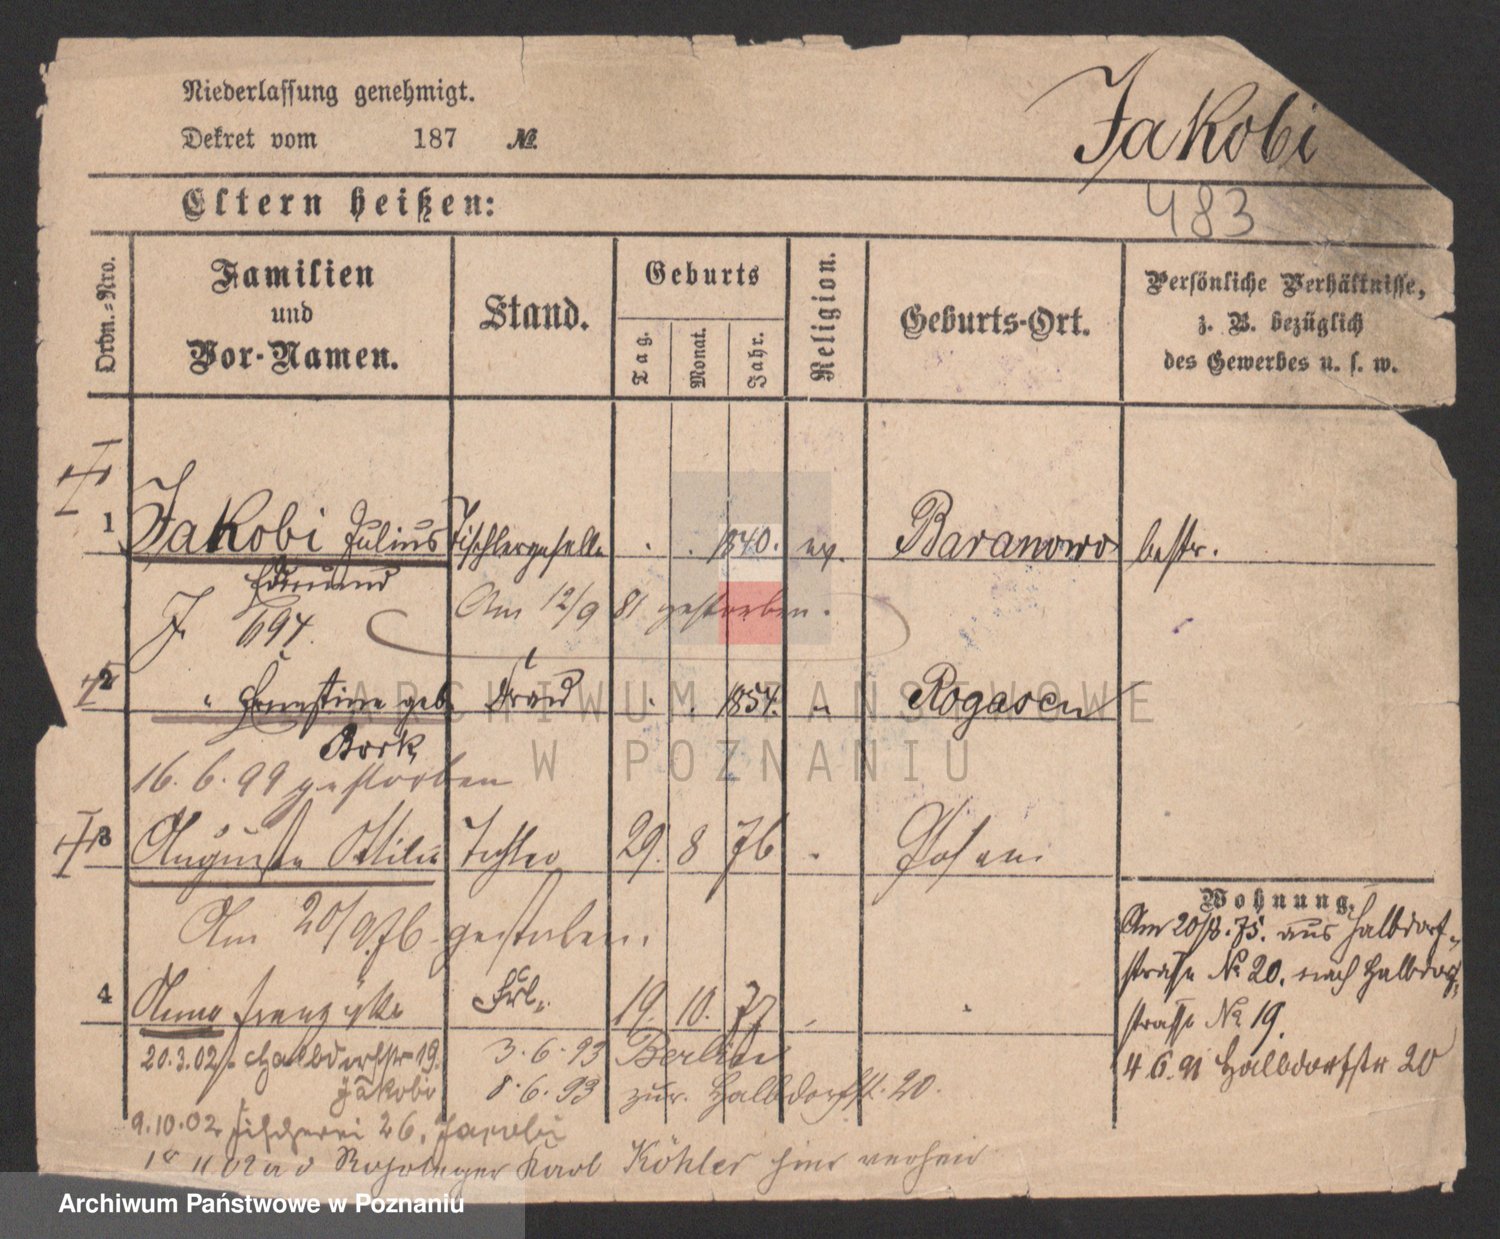 Niederlassung genehmigt.
Dekret vom 187 №
Jakobi
483
Eltern heißen:
Ordn.-Nro.
Familien und Vor-Namen.
Stand.
Geburts
Tag.
Monat.
Jahr.
Religion.
Geburts-Ort.
Persönliche Verhältnisse,
z. B. bezüglich
des Gewerbes u. s. w.
1 Jakobi Julius Tischlergeselle . . 1840. ev. Baranowo bestr.
Edmund
J. 694.
Am 12/9 81 gestorben.
2 " Ernestine geb. Frau . . 1854. " Rogasen
Bork
16.6.99 gestorben
3 Auguste Ottilie Tochter 29. 8 76 " Posen
Am 20/9.76. gestorben.
4 Anna Franziska 19. 10. 77 " "
Wohnung.
Am 20/8.75. aus Halbdorf-
strasse № 20. nach Halbdorf-
strasse № 19.
4.6.91 Halbdorfstr 20
20.3.02. Halbdorfstr 19.
Jakobi
3.6.93 Berlin
8.6.93 zur. Halbdorfstr. 20.
9.10.02 Fischerei 26, Jacobi
Karl Köhler hier verheir
ARCHIWUM PAŃSTWOWE
W POZNANIU
Archiwum Państwowe w Poznaniu